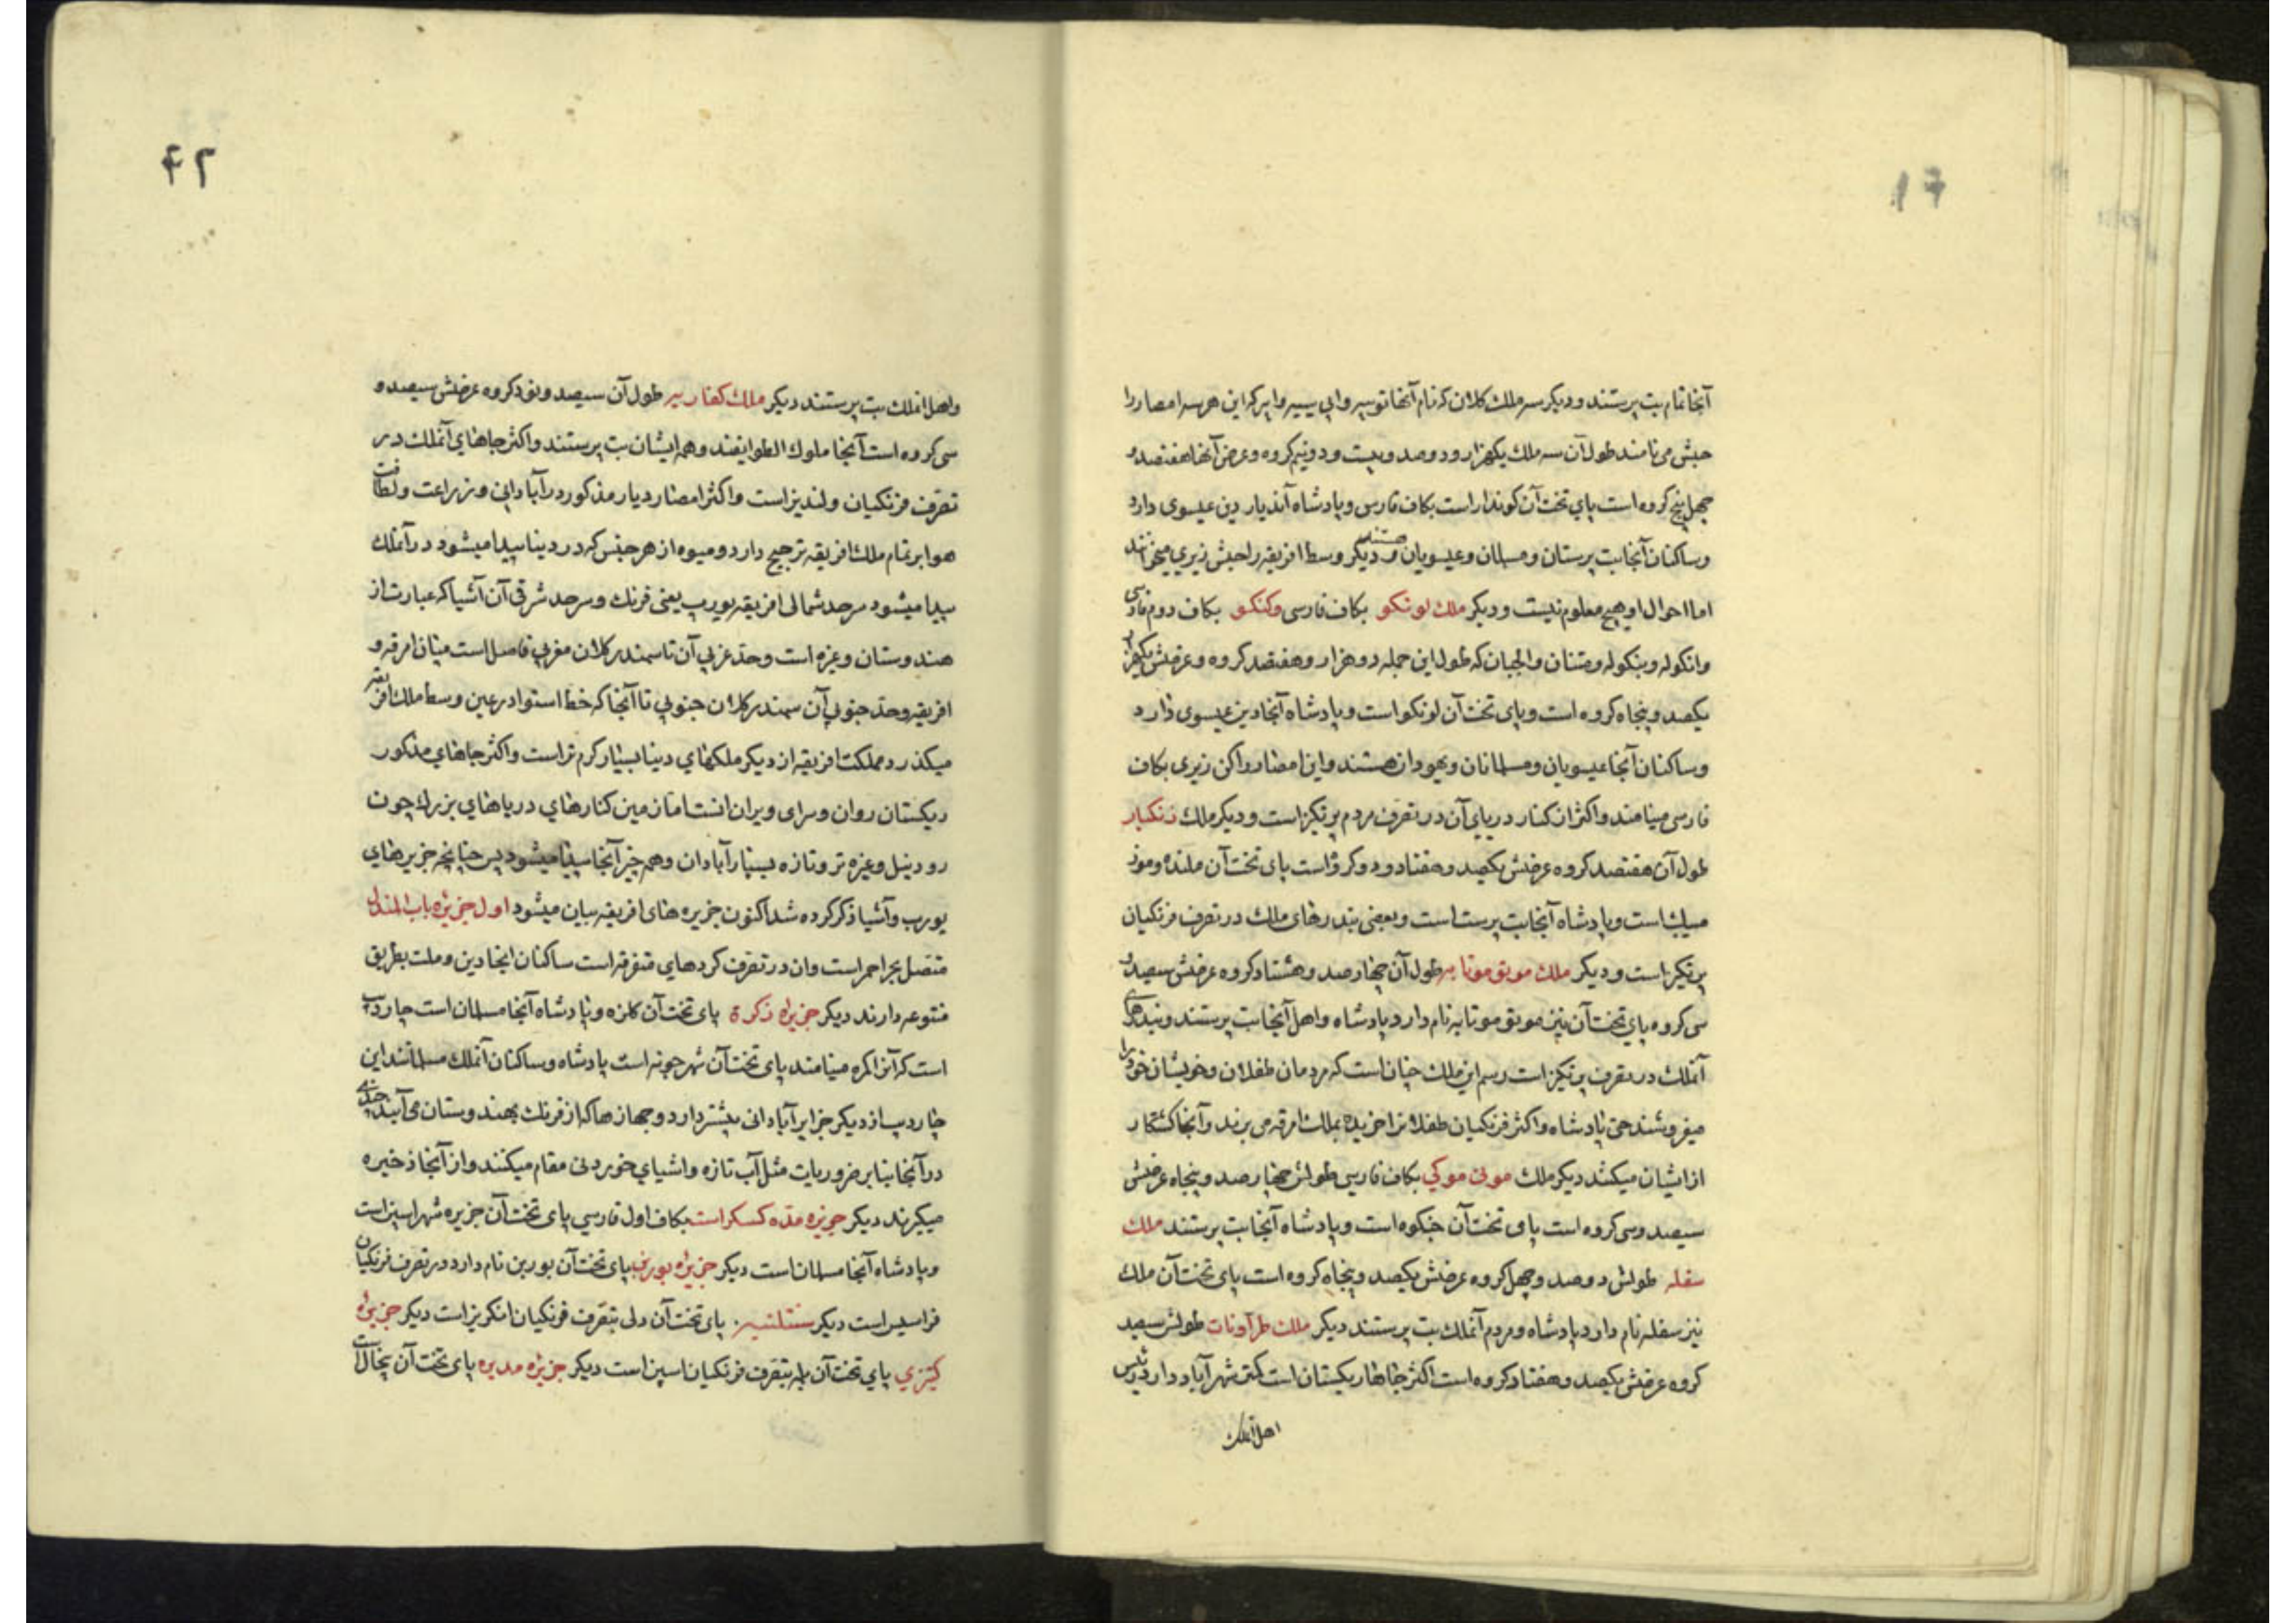 ۴۱
آنجا تمام بت پرستند و دیکر سه ملك کلان که نام آنها توبیه وابی سیه وابر که این هر سه امصار را
حبش می نامند طول آن سه ملك یکهزار و دو صد و بیست و دو نیم کروه و عرض آنها هفتصد و
چهل پنج کروه است پای تخت آن کوندار است بکاف فارسی و پادشاه آندیار دین عیسوی دارد
و ساکنان آنجا بت پرستان و مسلمان و عیسویان هستند و دیکر وسط افریقه را حبش زیری میخوانند
اما احوال او هیچ معلوم نیست و دیکر ملك لونکو بکاف فارسی وکنکو بکاف دوم فارسی
وانکوله وبنکوله ومتنان والجبان که طول این جمله دو هزار و هفتصد کروه و عرضش یکهزار
یکصد و پنجاه کروه است و پای تخت آن لونکو است و پادشاه آنجا دین عیسوی دارد
و ساکنان آنجا عیسویان و مسلمانان و یهودان هستند و این امصار را کن زیری بکاف
فارسی مینامند و اکثر از کنار دریای آن در تصرف مردم پرتکیز است و دیکر ملك زنکبار
طول آن هفتصد کروه عرضش یکصد و هفتاد و دو کروه است پای تخت آن ملنده و موز
مبیك است و پادشاه آنجا بت پرست است و بعضی بندرهای ملك در تصرف فرنکیان
پرتکیز است و دیکر ملك مونوموتاپه طول آن چهار صد و هشتاد کروه عرضش سیصد و
سی کروه پای تخت آن نیز مونوموتاپه نام دارد پادشاه و اهل آنجا بت پرستند و بندرهای
آنملك در تصرف پرتکیز است رسم این ملك چنان است که مردمان طفلان و خویشان خود را
میفروشند حتی پادشاه و اکثر فرنکیان طفلانرا خریده بملك امرقه می برند و آنجا کشتکار
از ایشان میکنند دیکر ملك مونی موکی بکاف فارسی طولش چهار صد و پنجاه عرضش
سیصد و سی کروه است پای تخت آن جنکوه است و پادشاه آنجا بت پرستند ملك
سفله طولش دو صد و چهل کروه عرضش یکصد و پنجاه کروه است پای تخت آن ملك
نیز سفله نام دارد پادشاه و مردم آنملك بت پرستند دیکر ملك طرآونات طولش سیصد
کروه عرضش یکصد و هفتاد کروه است اکثر جاها ریکستان است کمتر شهر آباد دارد رئیس
اهل آنملك
۴۲
واهل آنملك بت پرستند دیکر ملك کفاریه طول آن سیصد و نود کروه عرضش سیصد و
سی کروه است آنجا ملوك الطوایفند و همه ایشان بت پرستند و اکثر جاهای آنملك در
تصرف فرنکیان ولندیز است و اکثر امصار دیار مذکور در آبادانی و زراعت و لطافت
هوا بر تمام ملك افریقه ترجیح دارد و میوه از هر جنس که در دنیا پیدا میشود در آنملك
پیدا میشود سرحد شمالی افریقه یورپ یعنی فرنك و سرحد شرقی آن آشیا که عبارت از
هندوستان وغیره است و حد غربی آن تا سمندر کلان مغربی فاصل است میان امرقه و
افریقه وحد جنوبی آن سمندر کلان جنوبی تا آنجا که خط استوا در عین وسط ملك افریقه
میکذرد مملکت افریقه از دیکر ملکهای دنیا بسیار کرم تر است و اکثر جاهای مذکور
ریکستان روان و سرای ویران است اما زمین کنارهای دریاهای بزرك چون
رود نیل وغیره تر و تازه بسیار آبادان و همه چیز آنجا پیدا میشود پس چنانچه جزیرهای
یورپ و آشیا ذکر کرده شد اکنون جزیره های افریقه بیان میشود اول جزیره باب المندل
متصل بحر احمر است وان در تصرف کردهای متفرقه است ساکنان آنجا دین و ملت بطریق
متنوعه دارند دیکر جزیره زکرة پای تخت آن کلزه و پادشاه آنجا مسلمان است چار دیب
است که آنرا کمره مینامند پای تخت آن شهر جونه است پادشاه و ساکنان آنملك مسلمانند این
چار دیب از دیکر جزایر آبادانی بیشتر دارد و جهازها که از فرنك بهندوستان می آیند
در آنجا بنابر ضروریات مثل آب تازه و اشیای خوردنی مقام میکنند و از آنجا ذخیره
میکیرند دیکر جزیره مده کسکر است بکاف اول فارسی پای تخت آن جزیره شهر اسپن است
و پادشاه آنجا مسلمان است دیکر جزیره بوربن پای تخت آن بوربن نام دارد در تصرف فرنکیان
فراسیس است دیکر سنتلنیه پای تخت آن دلی بتصرف فرنکیان انکریز است دیکر جزیره
کینری پای تخت آن پله بتصرف فرنکیان اسپن است دیکر جزیره مدیره پای تخت آن پنجال است